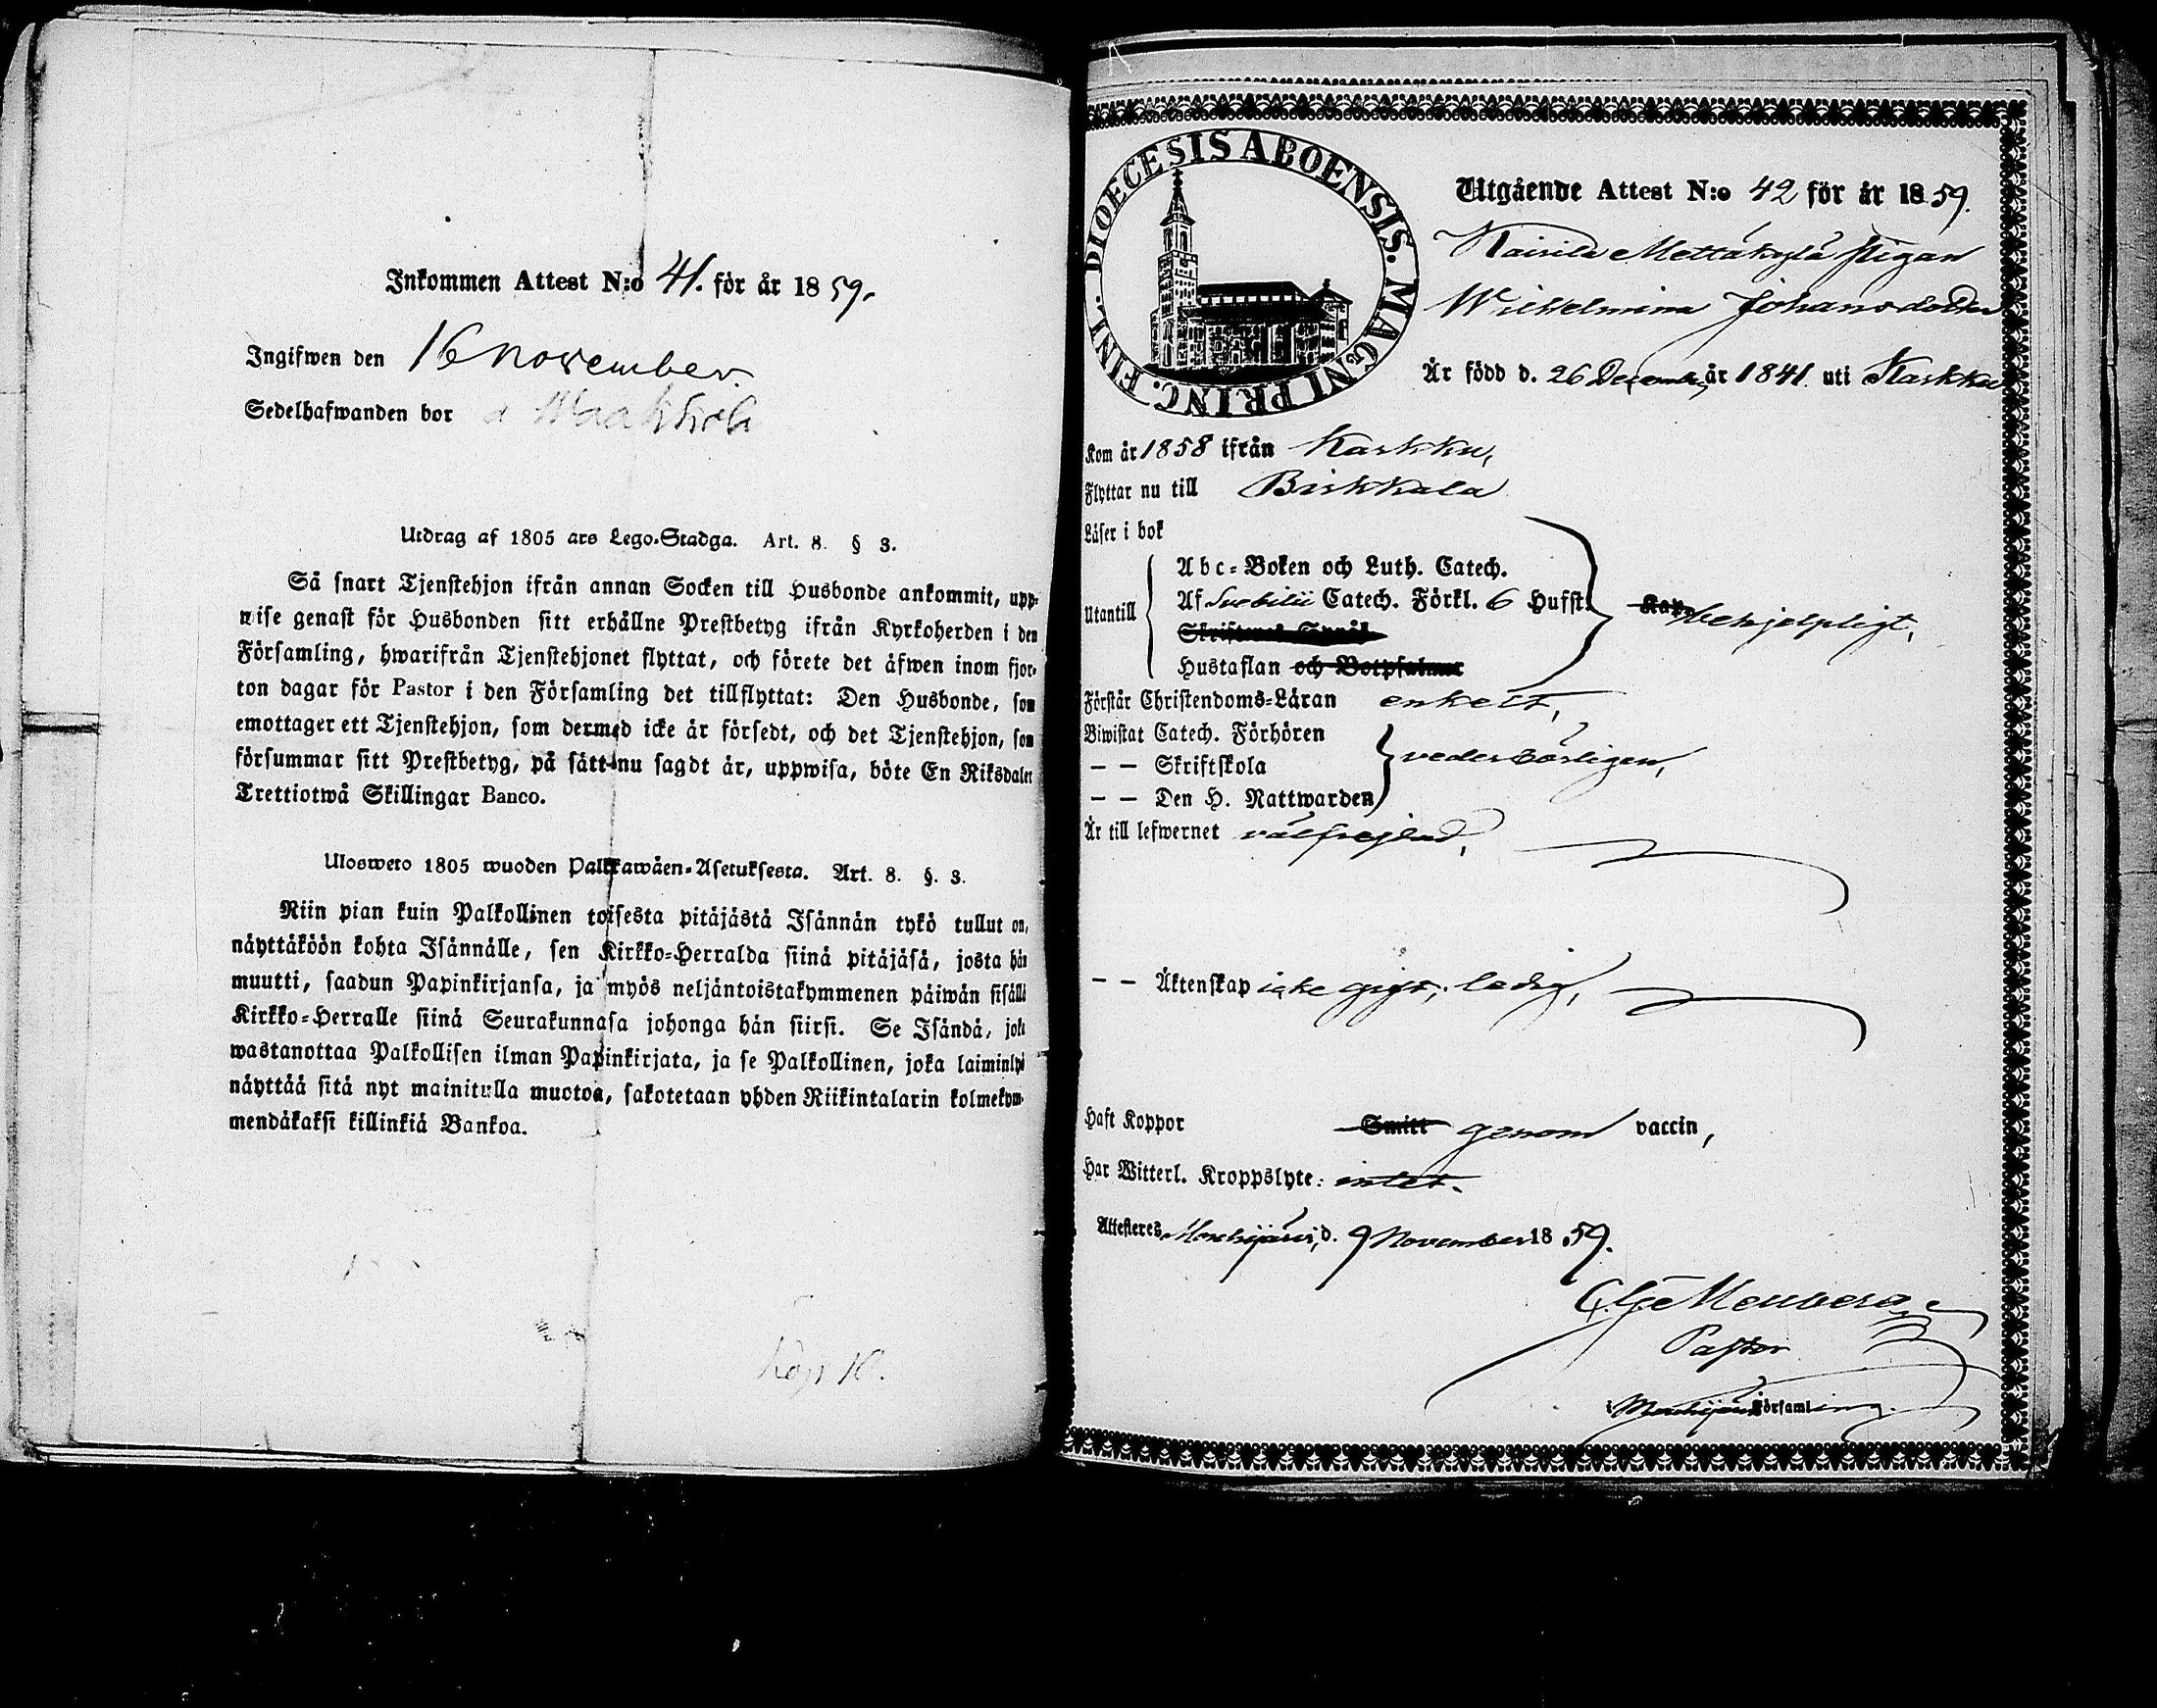 Inkommen Attest N:o 41. för år 1859.
Ingifwen den 16 november.
Sedelhafwanden bor
Utdrag af 1805 ars Lego-Stadga. Art. 8. § 3.
Så snart Tjenstehjon ifrån annan Socken till Husbonde ankommit, upp-
wise genast för Husbonden sitt erhållne Prestbetyg ifrån Kyrkoherden i den
Församling, hwarifrån Tjenstehjonet flyttat, och förete det äfwen inom fjor-
ton dagar för Pastor i den Församling det tillflyttat: Den Husbonde, som
emottager ett Tjenstehjon, som dermed icke är försedt, och det Tjenstehjon, som
försummar sitt Prestbetyg, på sätt nu sagdt är, uppwisa, böte En Riksdaler
Trettiotwå Skillingar Banco.
Ulosweto 1805 wuoden Palkkawäen-Asetuksesta. Art. 8. §. 3.
Niin pian kuin Palkollinen toisesta pitäjästä Isännän tykö tullut on,
näyttäköön kohta Isännälle, sen Kirkko-Herralda siinä pitäjäsä, josta hän
muutti, saadun Papinkirjansa, ja myös neljäntoistakymmenen päiwän sisällä
Kirkko-Herralle siinä Seurakunnasa johonga hän siirsi. Se Isändä, joka
wastanottaa Palkollisen ilman Papinkirjata, ja se Palkollinen, joka laiminlyö
näyttää sitä nyt mainitulla muotoa, sakotetaan yhden Riikintalarin kolmekym-
mendäkaksi killinkiä Bankoa.
DIOECESIS ABOENSIS. MAGNI PRINC. FINL.
Utgående Attest N:o 42 för år 1859.
Mettäkylä Pigan
Wilhelmina Johansdotter
Är född d. 26 December år 1841. uti Karkku
Kom år 1858 ifrån Karkku,
Flyttar nu till Birkkala
Läser i bok
Utantill
Abc-Boken och Luth. Catech.
Af Svebilii Catech. Förkl. 6 Hufst.
Skriftenes Språk
Hustaflan och Botpsalmer
behjelpligt,
Förstår Christendoms-Läran enkelt,
Biwistat Catech. Förhören
— — Skriftskola
— — Den H. Nattwarden
vederbörligen,
Är till lefwernet välfrejdad,
— — Äktenskap icke gift, ledig,
Haft Koppor Smitt genom vaccin,
Har Witterl. Kroppslyte: intet.
Attesteres, Mouhijärvi, d. 9 November 1859.
Pastor
i Mouhijärvi Församling.